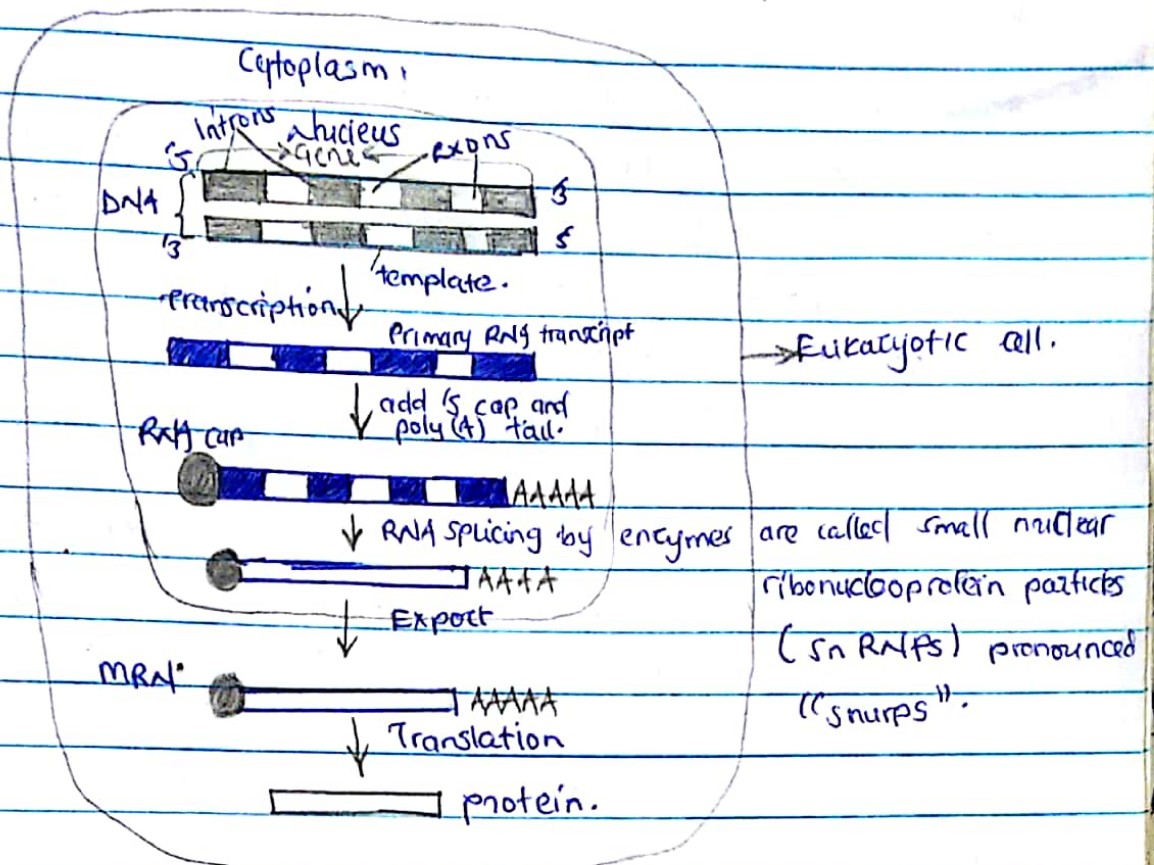 Cytoplasm
Introns
Nucleus
Gene
Exons
'5
'3
DNA
'3
'5
template.
Transcription
Primary RNA transcript
Eukaryotic cell.
add '5 cap and
poly(A) tail.
RNA cap
AAAAA
RNA splicing by enzymes are called small nuclear
AAAA
ribonucleoprotein particles
Export
(snRNPs) pronounced
MRN
AAAAA
"snurps".
Translation
protein.